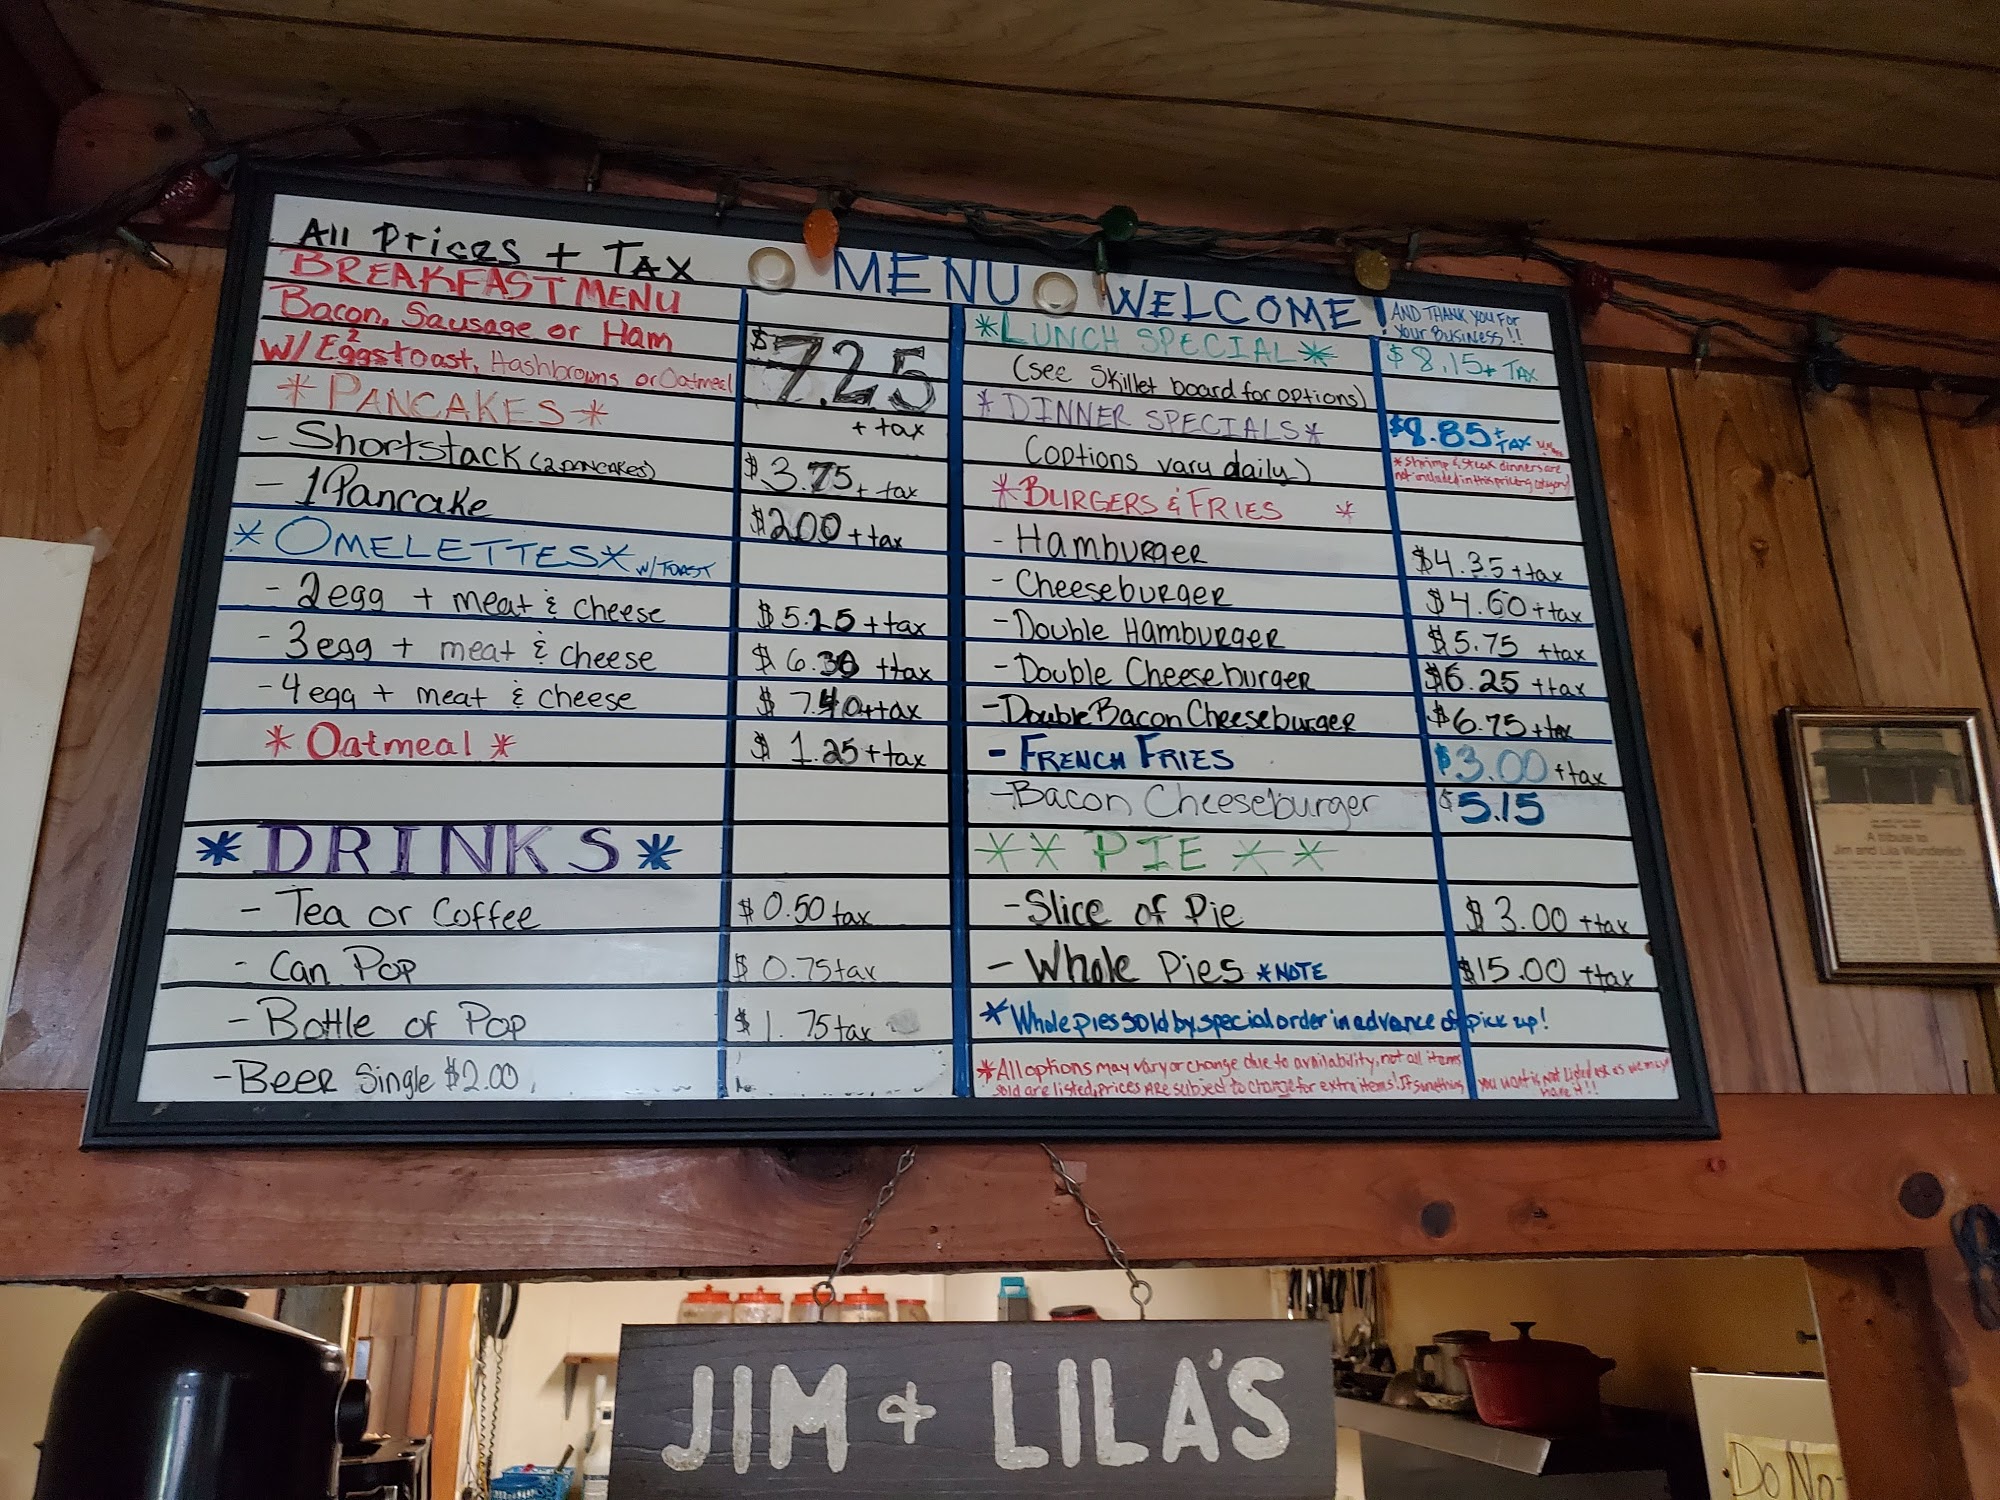 All Prices + TAX
MENU
WELCOME!
AND THANK YOU FOR
Your Business!!
BREAKFAST MENU
Bacon, Sausage or Ham
W/ 2 Eggs toast, Hashbrowns or Oatmeal
$7.25
+ tax
*PANCAKES*
- Shortstack (2 PANCAKES) $3.75 + tax
- 1 Pancake $2.00 + tax
*OMELETTES* W/ TOAST
- 2 egg + meat & cheese $5.25 + tax
- 3 egg + meat & cheese $6.30 + tax
- 4 egg + meat & cheese $7.40 + tax
*Oatmeal* $1.25 + tax
*DRINKS*
- Tea or Coffee $0.50 tax
- Can Pop $0.75 tax
- Bottle of Pop $1.75 tax
- Beer Single $2.00
*LUNCH SPECIAL* $8.15 + TAX
(see Skillet board for options)
*DINNER SPECIALS* $8.85 + TAX
(options vary daily)
*Shrimp & Steak dinners are
not included in this pricing category!
*BURGERS & FRIES *
- Hamburger $4.35 + tax
- Cheeseburger $4.60 + tax
- Double Hamburger $5.75 + tax
- Double Cheeseburger $6.25 + tax
- Double Bacon Cheeseburger $6.75 + tax
- FRENCH FRIES $3.00 + tax
- Bacon Cheeseburger $5.15
** PIE **
- Slice of Pie $3.00 + tax
- Whole Pies *NOTE $15.00 + tax
*Whole pies sold by special order in advance of pick up!
*All options may vary or change due to availability, not all items
sold are listed, prices ARE subject to change for extra items! If something you want is Not Listed ask as we may
have it!!
A tribute to
Jim and Lila Wunderlich
JIM & LILA'S
Do No